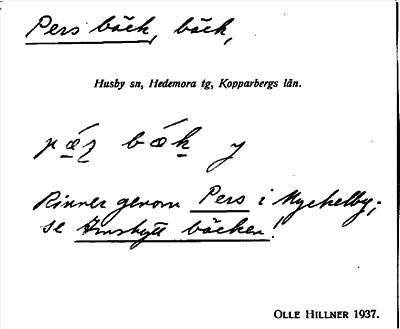 Pers bäck, bäck,
Husby sn, Hedemora tg, Kopparbergs län.
pæ´ʂ bæ´k y
Rinner genom Pers i Myckelby;
se bäcken!
OLLE HILLNER 1937.